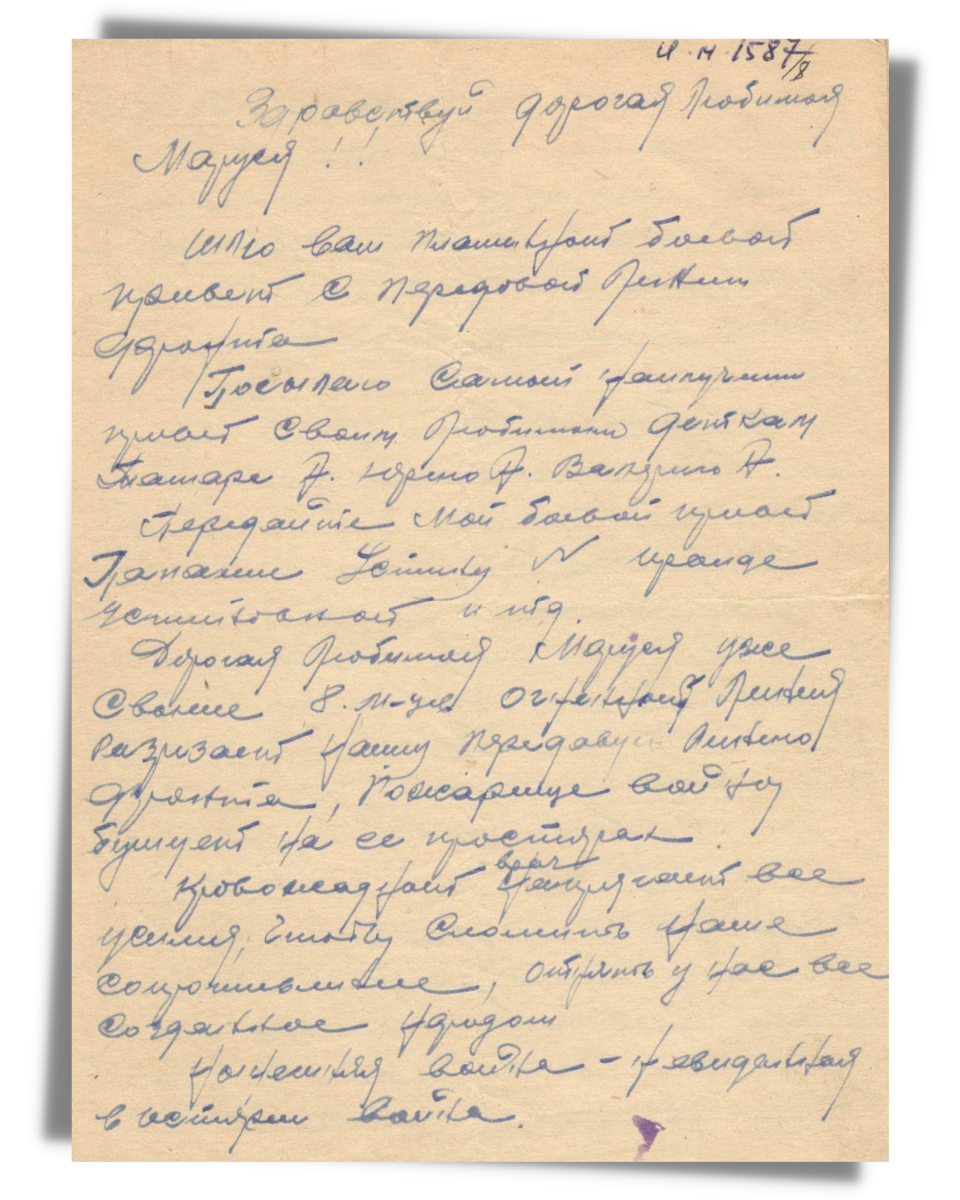 и.м.1587/8
Здравствуй дорогая Любимая
Маруся!!
Шлю вам пламенной боевой
привет с передовой Линии
фронта
Посылаю самой наилучший
привет своим Любимым деткам
Тамаре А. Юрию А. А.
Передайте мой боевой привет
Папаши Устину
Устиновной и тд.
Дорогая Любимая Маруся уже
свыше 8. м-це огненной Линия
нашу передовую Линию
фронта, Пожарище войны
бушует на ее просторах
Кровожадной враг напрягает все
усилия, чтобы сломить наше
сопротивление, отнять у нас все
созданное народом
Нынешняя война - невиданная
в истории война.